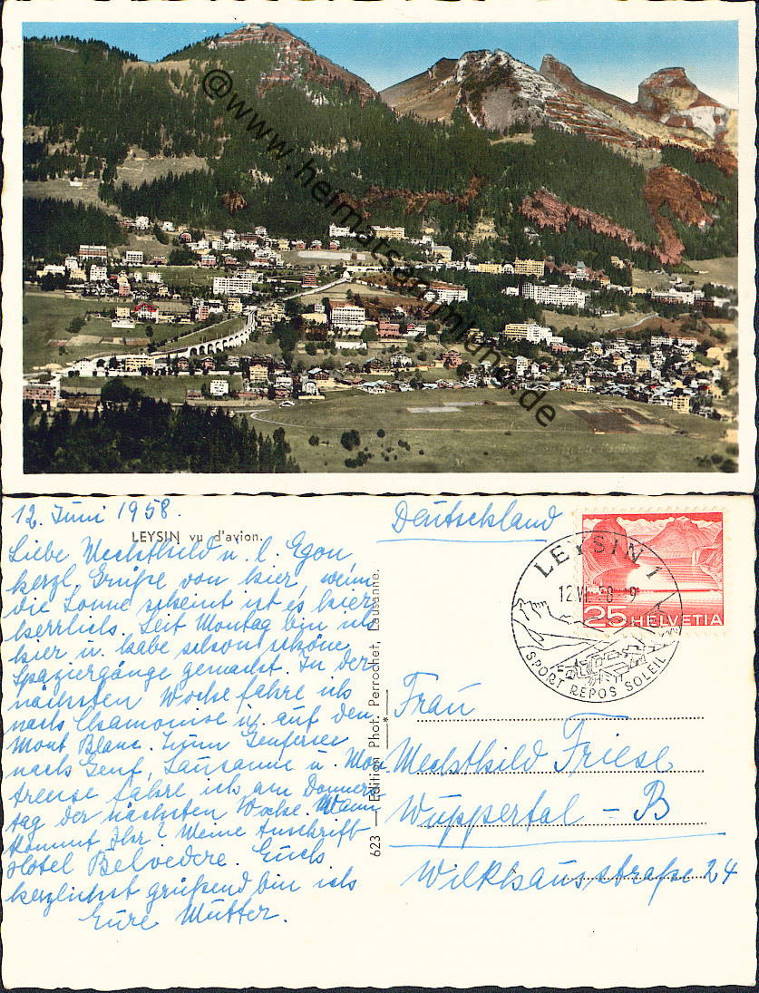 @www.heimatsammlung.de
12. Juni 1958.
LEYSIN vu d'avion.
Liebe Mechthild u. l. Egon,
herzl. Grüße von hier, wenn
die Sonne scheint ist es hier
herrlich. Seit Montag bin ich
hier u. habe schon schöne
Spaziergänge gemacht. In der
nächsten Woche fahre ich
nach Chamonise u. auf den
Mont Blanc. Zum Genfersee
nach Genf, Lausanne u. Mon
treuse fahre ich am Donners
tag der nächsten Woche. Wann
kommt Ihr? Meine Anschrift
Hotel Belvedere. Euch
herzlichst grüßend bin ich
Eure Mutter.
623 — Edition Phot. Perrochet, Lausanne.
Deutschland
LEYSIN 1
12.VI. 58 - 9
SPORT REPOS SOLEIL
25 HELVETIA
Frau
Mechthild Friese
Wuppertal - B
Wilkhausstraße 24